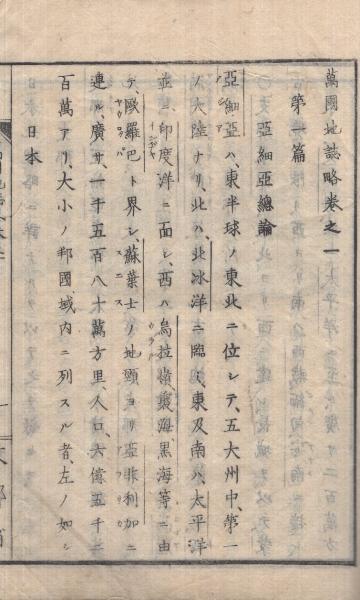 萬國地誌略卷之一
第一篇
亞細亞總論
亞細亞ハ、東半球ノ東北ニ位シテ、五大州中、第一
ノ大陸ナリ、北ハ、北冰洋ニ臨ミ、東及南ハ、太平洋
並ニ印度洋ニ面シ、西ハ烏拉嶺、裏海、黒海等ニ由
テ、歐羅巴ト界シ、蘇葉士ノ地頸ヨリ亞非利加ニ
連ル、廣サ、一千五百八十萬方里、人口、六億五千二
百萬アリ、大小ノ邦國、域内ニ列スル者、左ノ如シ
日本